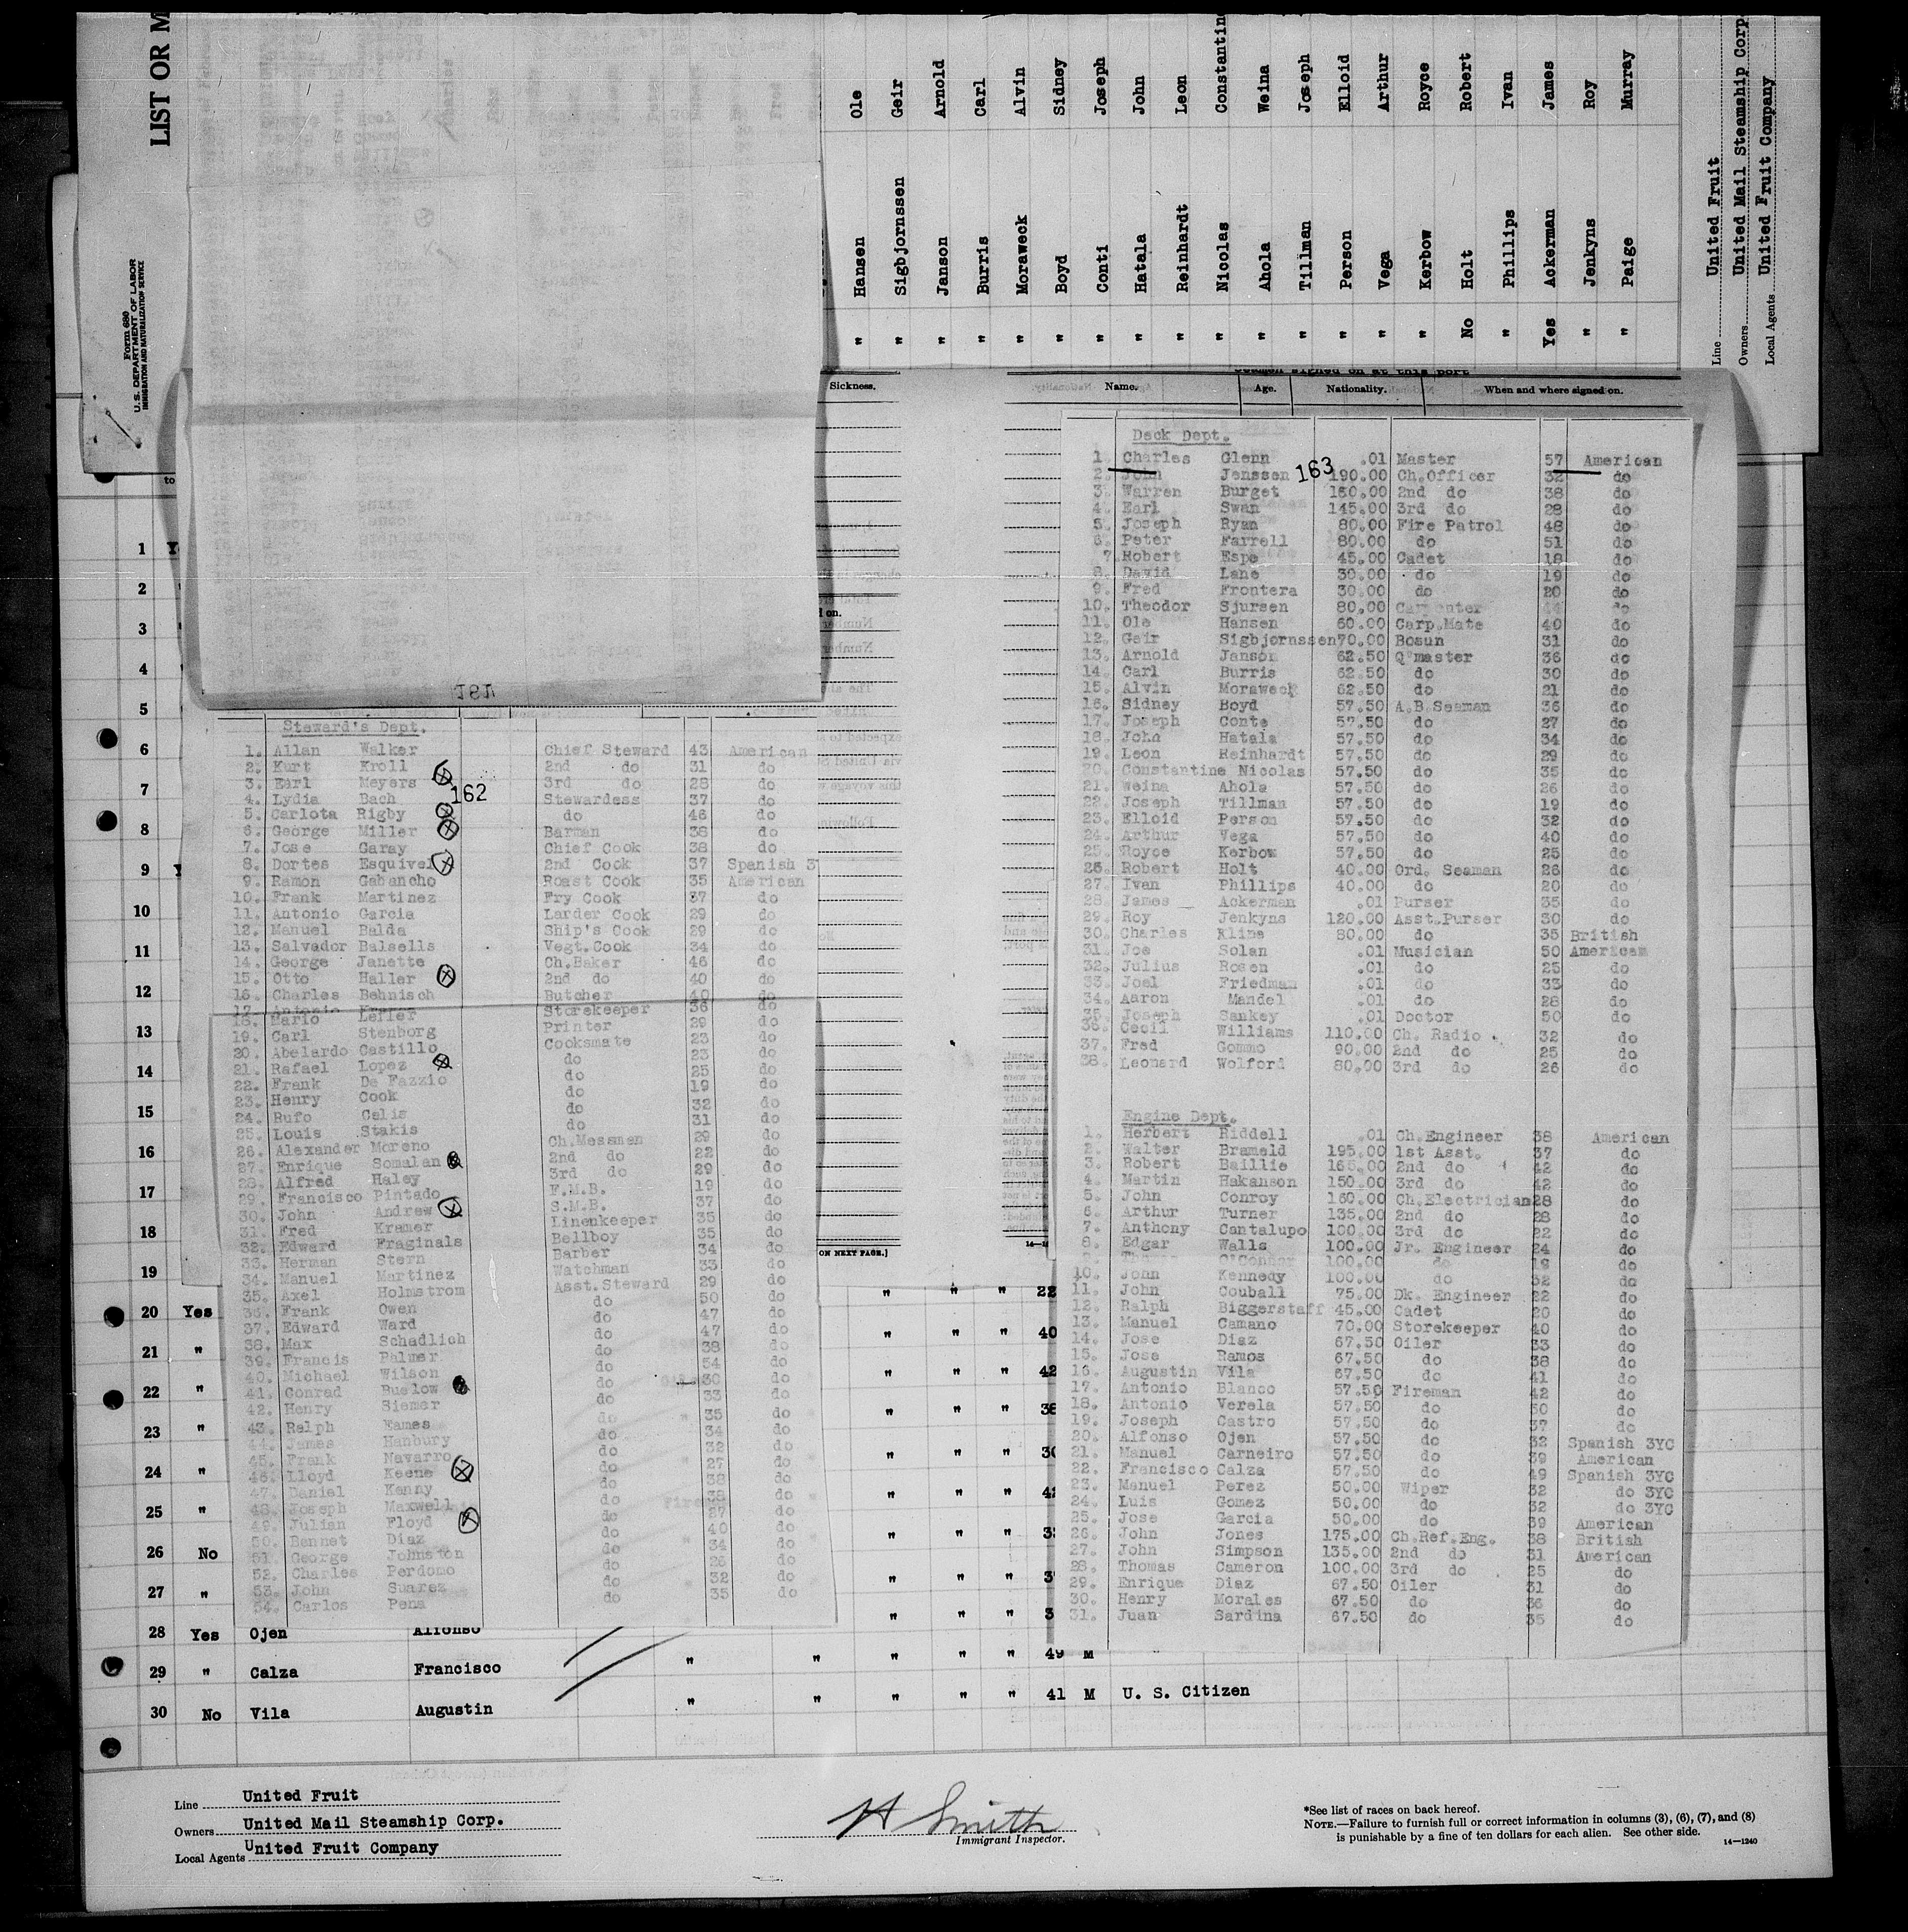 LIST OR M
Form 680
U. S. DEPARTMENT OF LABOR
IMMIGRATION AND NATURALIZATION SERVICE
" Hansen Ole
" Sigbjornssen Geir
" Janson Arnold
" Burris Carl
" Moraweck Alvin
" Boyd Sidney
" Conti Joseph
" Hatala John
" Reinhardt Leon
" Nicolas Constantin
" Ahola Weina
" Tillman Joseph
" Person Elloid
" Vega Arthur
" Kerbow Royce
No Holt Robert
" Phillips Ivan
Yes Ackerman James
" Jenkyns Roy
" Paige Murray
Line United Fruit
Owners United Mail Steamship Corp.
Local Agents United Fruit Company
Sickness.
Seamen signed on at this port
Name. Age. Nationality. When and where signed on.
Steward's Dept.
1. Allan Walker Chief Steward 43 American
2. Kurt Kroll 2nd do 31 do
3. Earl Meyers 3rd do 28 do
162
4. Lydia Bach Stewardess 37 do
5. Carlota Rigby do 46 do
6. George Miller Barman 38 do
7. Jose Garay Chief Cook 38 do
8. Dortes Esquivel 2nd Cook 37 Spanish 3
9. Ramon Gabancho Roast Cook 35 American
10. Frank Martinez Fry Cook 37 do
11. Antonio Garcia Larder Cook 29 do
12. Manuel Balda Ship's Cook 29 do
13. Salvador Balsells Vegt.Cook 34 do
14. George Janette Ch.Baker 46 do
15. Otto Haller 2nd do 40 do
16. Charles Behnisch Butcher 40 do
17. Antonio Storekeeper 36 do
18. Mario Lefler Printer 29 do
19. Carl Stenborg Cooksmate 23 do
20. Abelardo Castillo do 23 do
21. Rafael Lopez do 25 do
22. Frank De Fazzio do 19 do
23. Henry Cook do 32 do
24. Rufo Celis do 31 do
25. Louis Stakis Ch.Messman 29 do
26. Alexander Moreno 2nd do 22 do
27. Enrique Somalan 3rd do 29 do
28. Alfred Haley F.M.B. 19 do
29. Francisco Pintado S.M.B. 37 do
30. John Andrew Linenkeeper 35 do
31. Fred Kramer Bellboy 35 do
32. Edward Fraginals Barber 34 do
33. Herman Stern Watchman 33 do
34. Manuel Martinez Asst.Steward 29 do
35. Axel Holmstrom do 50 do
36. Frank Owen do 47 do
37. Edward Ward do 47 do
38. Max Schadlich do 38 do
39. Francis Palmer do 54 do
40. Michael Wilson do 30 do
41. Conrad Buelow do 33 do
42. Henry Siemer do 35 do
43. Ralph Eames do 34 do
44. James Hanbury do 32 do
45. Frank Navarro do 27 do
46. Lloyd Keene do 38 do
47. Daniel Kenny do 38 do
48. Joseph Maxwell do 27 do
49. Julian Floyd do 40 do
50. Bennet Diaz do 34 do
51. George Johnston do 26 do
52. Charles Perdomo do 32 do
53. John Suarez do 35 do
54. Carlos Pena
Deck Dept.
1. Charles Glenn .01 Master 57 American
163
2. John Jenssen 190.00 Ch.Officer 32 do
3. Warren Burget 160.00 2nd do 38 do
4. Earl Swan 145.00 3rd do 28 do
5. Joseph Ryan 80.00 Fire Patrol 48 do
6. Peter Farrell 80.00 do 51 do
7. Robert Espe 45.00 Cadet 18 do
8. David Lane 30.00 do 19 do
9. Fred Frontera 30.00 do 20 do
10. Theodor Sjursen 80.00 Carpenter 44 do
11. Ole Hansen 60.00 Carp.Mate 40 do
12. Geir Sigbjornssen 70.00 Bosun 31 do
13. Arnold Janson 62.50 Q'master 36 do
14. Carl Burris 62.50 do 30 do
15. Alvin Moraweck 62.50 do 21 do
16. Sidney Boyd 57.50 A.B.Seaman 36 do
17. Joseph Conte 57.50 do 27 do
18. John Hatala 57.50 do 34 do
19. Leon Reinhardt 57.50 do 29 do
20. Constantine Nicolas 57.50 do 35 do
21. Weina Ahola 57.50 do 26 do
22. Joseph Tillman 57.50 do 19 do
23. Elloid Person 57.50 do 32 do
24. Arthur Vega 57.50 do 40 do
25. Royce Kerbow 57.50 do 25 do
26. Robert Holt 40.00 Ord. Seaman 26 do
27. Ivan Phillips 40.00 do 20 do
28. James Ackerman .01 Purser 35 do
29. Roy Jenkyns 120.00 Asst.Purser 30 do
30. Charles Kline 80.00 do 35 British
31. Joe Solan .01 Musician 50 American
32. Julius Rosen .01 do 25 do
33. Joel Friedman .01 do 33 do
34. Aaron Mandel .01 do 28 do
35. Joseph Sankey .01 Doctor 50 do
36. Cecil Williams 110.00 Ch. Radio . 32 do
37. Fred Gommo 90.00 2nd do 25 do
38. Leonard Wolford 80.00 3rd do 26 do
Engine Dept.
1. Herbert Riddell .01 Ch.Engineer 38 American
2. Walter Brameld 195.00 1st Asst. 37 do
3. Robert Baillie 165.00 2nd do 42 do
4. Martin Hakanson 150.00 3rd do 42 do
5. John Conroy 160.00 Ch.Electrician 28 do
6. Arthur Turner 135.00 2nd do 28 do
7. Anthony Cantalupo 100.00 3rd do 22 do
8. Edgar Walls 100.00 Jr. Engineer 24 do
9. O'Connor 100.00 do 19 do
10. John Kennedy 100.00 do 32 do
11. John Couball 75.00 Dk. Engineer 22 do
12. Ralph Biggerstaff 45.00 Cadet 20 do
13. Manuel Camano 70.00 Storekeeper 40 do
14. Jose Diaz 67.50 Oiler 33 do
15. Jose Ramos 67.50 do 38 do
16. Augustin Vila 67.50 do 41 do
17. Antonio Blanco 57.50 Fireman 42 do
18. Antonio Verela 57.50 do 50 do
19. Joseph Castro 57.50 do 37 do
20. Alfonso Ojen 57.50 do 32 Spanish 3YC
21. Manuel Carneiro 57.50 do 39 American
22. Francisco Calza 57.50 do 49 Spanish 3YC
23. Manuel Perez 50.00 Wiper 32 do 3YC
24. Luis Gomez 50.00 do 32 do 3YC
25. Jose Garcia 50.00 do 39 American
26. John Jones 175.00 Ch.Ref.Eng. 38 British
27. John Simpson 135.00 2nd do 31 American
28. Thomas Cameron 100.00 3rd do 25 do
29. Enrique Diaz 67.50 Oiler 31 do
30. Henry Morales 67.50 do 36 do
31. Juan Sardina 67.50 do 35 do
ON NEXT PAGE.]
1
2
3
4
5
6
7
8
9
10
11
12
13
14
15
16
17
18
19
20 Yes " " " 22
21 " " " " 40
22 " " " " 42
23 " " " " 38
24 " " " " 30
25 " " " "
26 No " " "
27 " " " "
28 Yes Ojen Alfonso " " "
29 " Calza Francisco " " " " " 49 M
30 No Vila Augustin " " " " " 41 M U. S. Citizen
Line United Fruit
Owners United Mail Steamship Corp.
Local Agents United Fruit Company
H Smith
Immigrant Inspector.
*See list of races on back hereof.
NOTE.—Failure to furnish full or correct information in columns (3), (6), (7), and (8)
is punishable by a fine of ten dollars for each alien. See other side.
14—1240